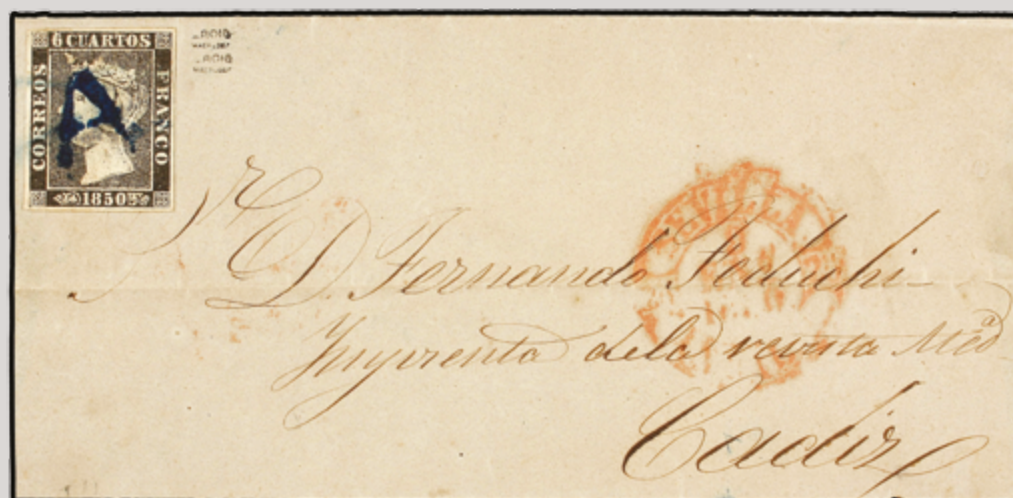 6 CUARTOS
CORREOS
FRANCO
1850
ROIG
ROIG
SEVILLA
Sr. D. Fernando Feduchi
Imprenta de la revista Medª
Cadiz